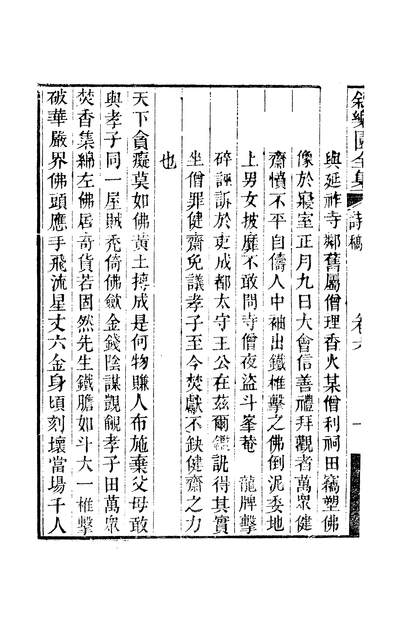 與延祚寺鄰舊屬僧理香火某僧利祠田竊塑佛
像於寢室正月九日大會信善禮拜觀者萬眾健
齋憤不平自儔人中袖出鐵椎擊之佛倒泥委地
上男女披靡不敢問寺僧夜盜斗峯菴 龍牌擊
碎誣訴於吏成都太守王公在茲爾鑑訊得其實
坐僧罪健齋免議孝子至今焚獻不缺健齋之力
也
天下貪癡莫如佛黃土摶成是何物賺人布施棄父母敢
與孝子同一屋賊禿倚佛斂金錢陰謀覬覦孝子田萬眾
焚香集綿左佛居奇貨若固然先生鐵膽如斗大一椎擊
破華嚴界佛頭應手飛流星丈六金身頃刻壞當場千人
樂園全集 詩稿 卷六 一